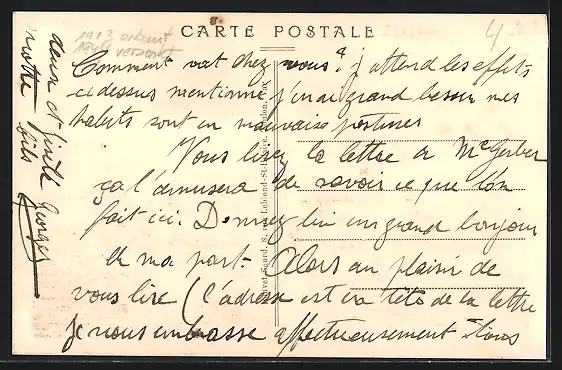 CARTE POSTALE
1913 erbaut
1944 zerstört
4
Comment vat chez vous? j'attend les effets
ci dessus mentionné j'en ai grand besoin mes
habits sont en mauvaise postures
Vous lirez la lettre a Me Gerber
ça l'amusera de savoir ce que l'on
fait ici. Donnez lui un grand bonjour
de ma part. Alors au plaisir de
vous lire (l'adresse est en tête de la lettre
je vous embrasse affectueusement tous
deux et Gisele
votre fils Georges